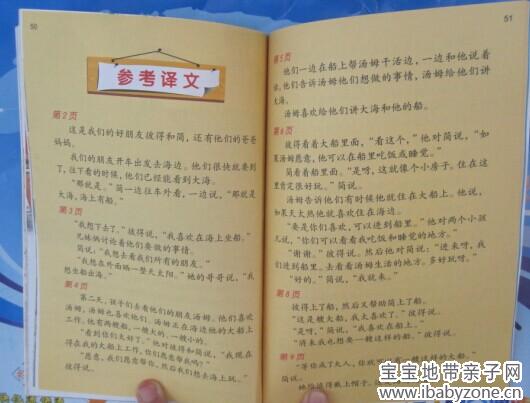 50
参考译文
第2页
这是我们的好朋友彼得和简,还有他们的爸爸
妈妈。
我们的朋友开车出发去海边。他们很快就要到
了,往下看的时候,他们已经能看到大海。
“那就是。”简一边往车外看,一边说,“那就是
大海,海上有船。”
第3页
“我想下去了。”彼得说,“我喜欢在海上坐船。”
兄妹俩讨论着他们要做的事情。
简说:“我想去看我们所有的朋友。”
“我想在外面晒一整天太阳。”她的哥哥说,“我
想坐船出海。”
第4页
第二天,孩子们去看他们的朋友汤姆。他们喜欢
汤姆,汤姆也喜欢他们。汤姆正在海边他的大船上
工作。他有两艘船,一艘大的,一艘小的。
“看到你们太好了。”他对彼得和简说,“我现在
得在我的大船上工作,你们愿意帮我吗?”
“愿意,我们愿意帮你,然后我们去海上玩。”
彼得说。
51
第5页
他们一边在船上帮汤姆干活边,一边和他说着
话,他们告诉汤姆他们想做的事情,汤姆给他们讲
大海。
汤姆喜欢给他们讲大海和他的船。
第6页
彼得看着大船里面,“看这个,”他对简说,“如
果汤姆愿意,他可以在船里吃饭或睡觉。”
简看着船里面:“是呀,这就像个小房子。住在这
里肯定很好玩。”简说。
汤姆告诉他们有时候他就住在大船上。他说,
如果天太热他就喜欢住在海边。
“要是你们喜欢,可以到船里来。”他对两个小孩
儿说,“你们可以看看我吃饭和睡觉的地方。”
“谢谢。”彼得说。然后他对简说:“进来呀,我
们进到船里来。去看看汤姆生活的地方。多好玩呀。”
“好的。”简说,“我就来。”
第8页
彼得上了船,然后又帮助简上了船。
“这是艘大船,我喜欢大船。”彼得说。
“是呀,”简说,“我喜欢在船上。”
“将来我也想要一艘这样的大船。”彼得说。
第9页
简说。
宝宝地带亲子网
www.ibabyzone.cn